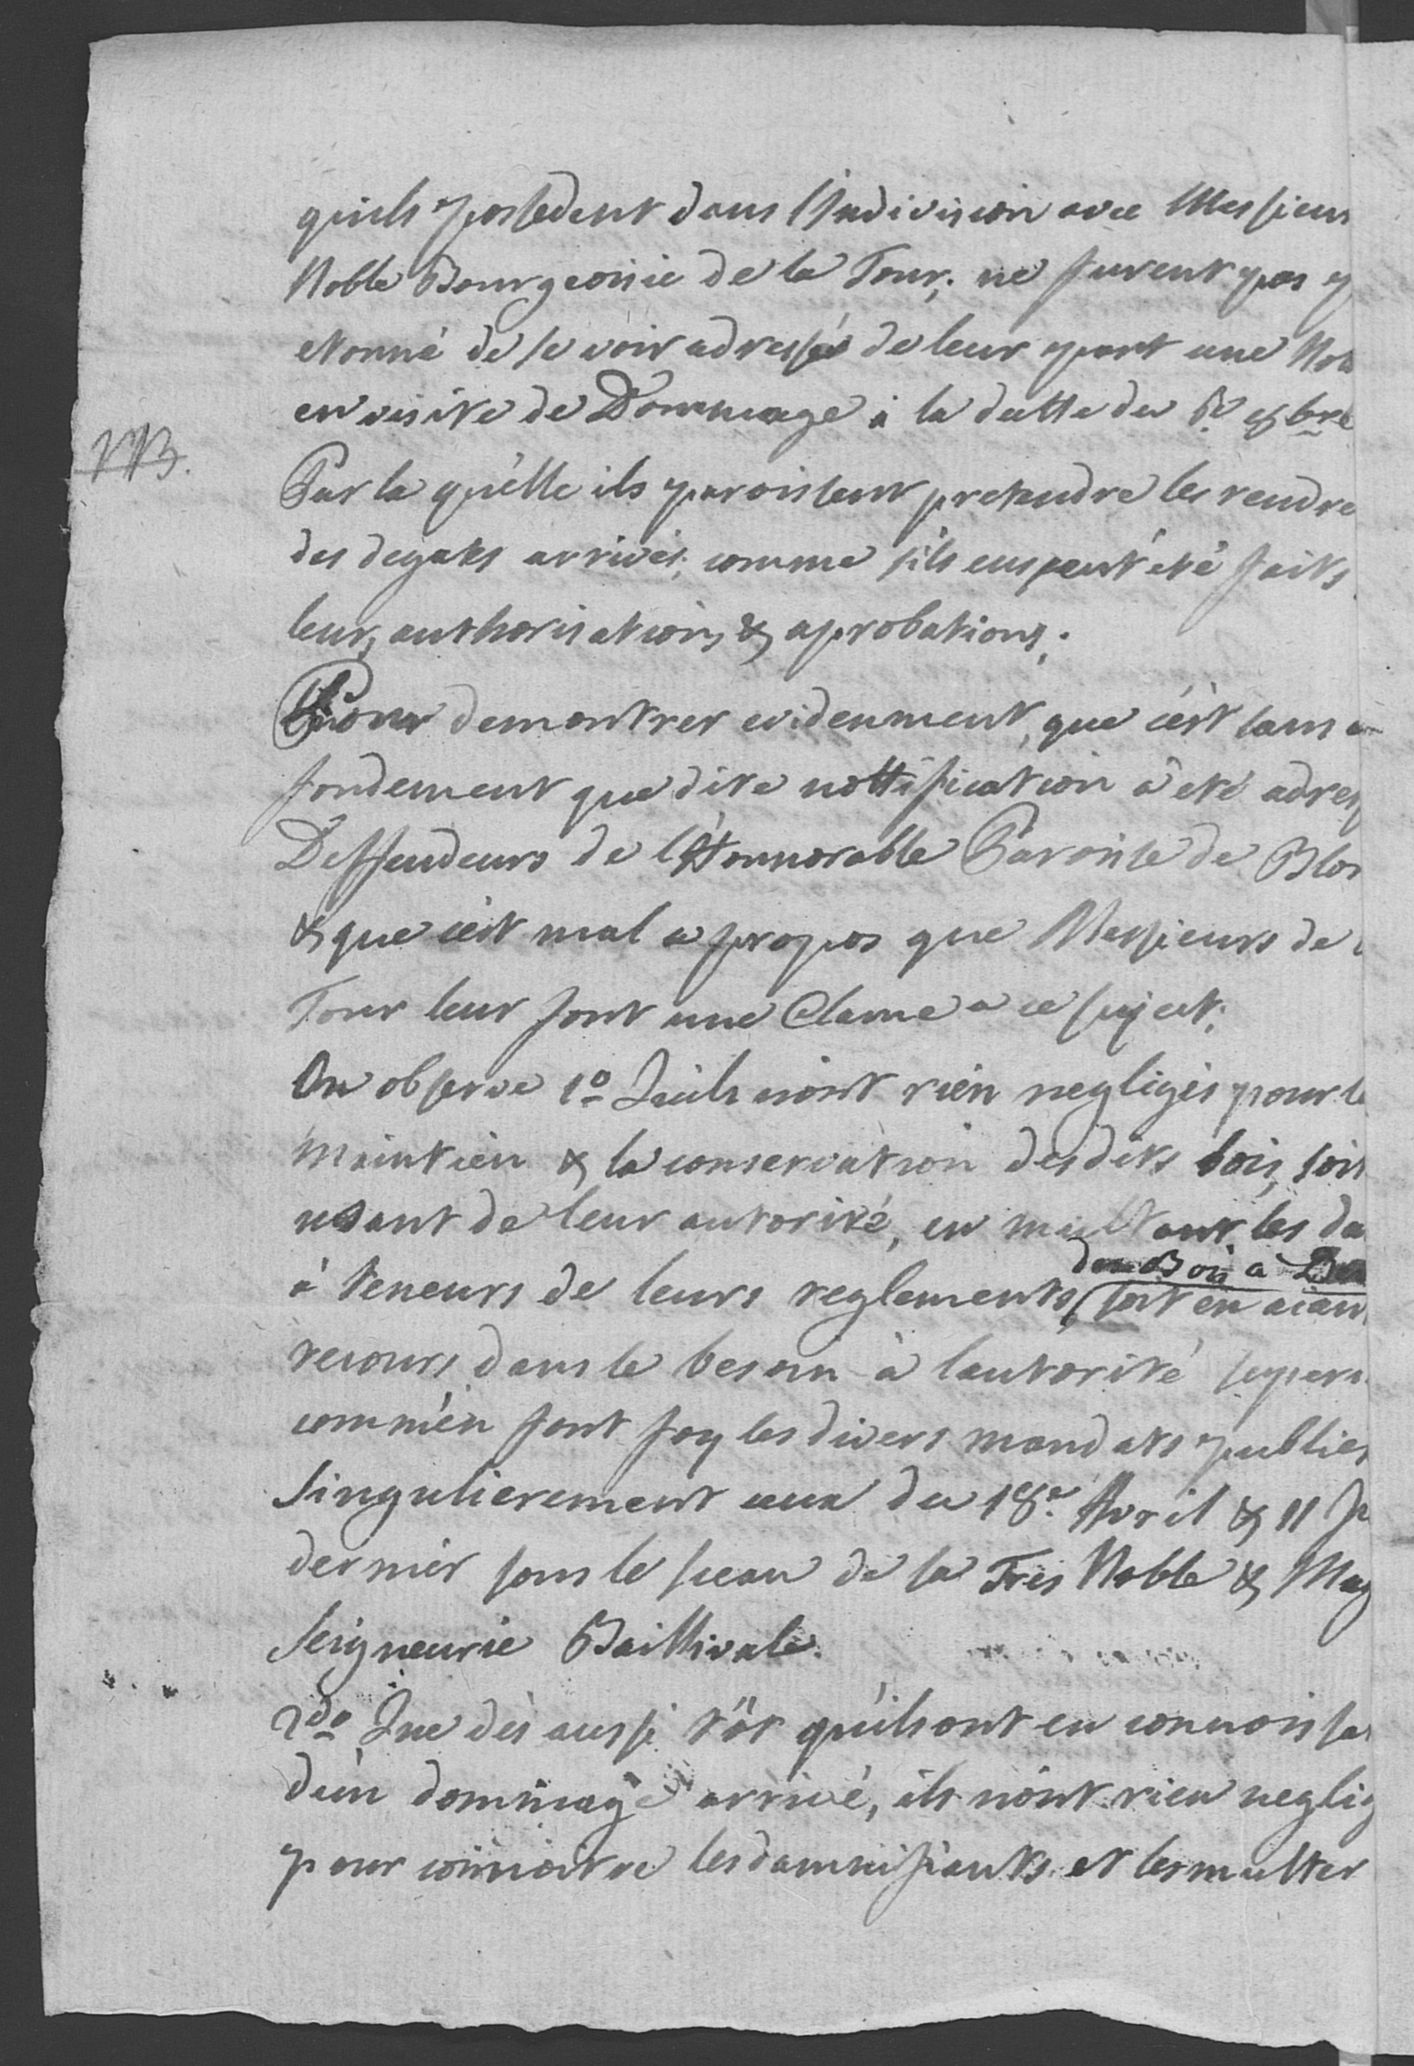 quils possedent dans l'Indivision avec Messieurs
Noble Bourgeoisie de la Tour; ne furent pas p
etonné de se voir adressés de leur part une Not
en visite de Dommage à la datte du 8bre
Par la quélle ils paroissent pretendre les rendre
des degats arrivés, comme s'ils eussent été faits
leurs authorisations & aprobations;
Pour demontrer evidenment, que c'ést sans
fondement que dite nottification à été adress
Deffendeurs de l'Honnorable Paroisse de Blon
& que cést mal a propos que Messieurs de
Tour leur font une Clame a ce sujest;
On observe 1o Quils n'ont rién negligés pour le
maintién & la conservation des dits bois, soit
usant de leur autorité, en multant les da
des Bois a Ban
à teneurs de leurs reglements, soit en aiant
recours dans le besoin à lautorité superi
comm'én font foy les divers mandats publies
singulierement ceux du 18e. Avril & 11 Ju
dernier sous le sceau de sa Tres Noble & Mag
Seigneurie Baillivale.
2do Que dès aussi tôt quils ont eu connoissa
dún dommage arrivé, ils n'ónt rien neglig
pour connoitre les damnifiants et les multer